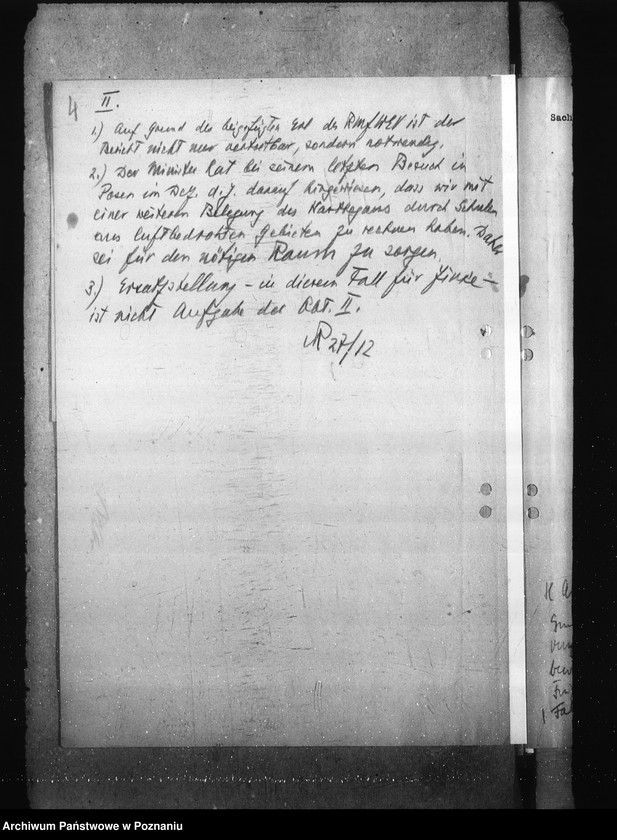 4
II.
1.) Auf Grund des beigefügten Erl. des RMfWEV ist der
Bericht nicht nur vertretbar, sondern notwendig.
2.) Der Minister hat bei seinem letzten Besuch in
Posen im Dez. d. J. darauf hingewiesen, dass wir mit
einer weiteren Belegung des Warthegaus durch Schulen
aus luftbedrohten Gebieten zu rechnen haben. Daher
sei für den nötigen Raum zu sorgen.
3) Ersatzstellung – in diesem Fall für –
ist nicht Aufgabe der Abt. II.
27/12
Sach
Archiwum Państwowe w Poznaniu